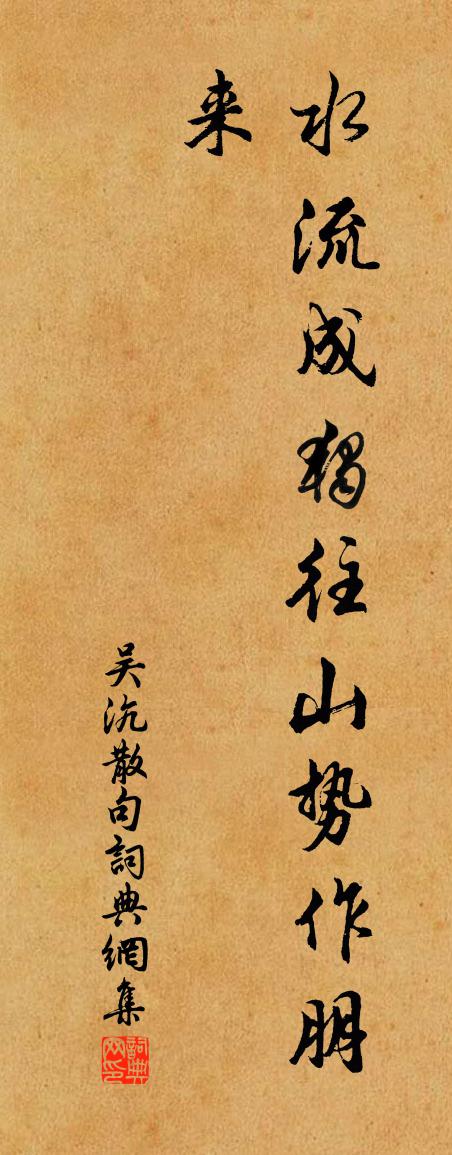 水流成独往山势作朋
来
吴沆散句詞典網集
詞典網印